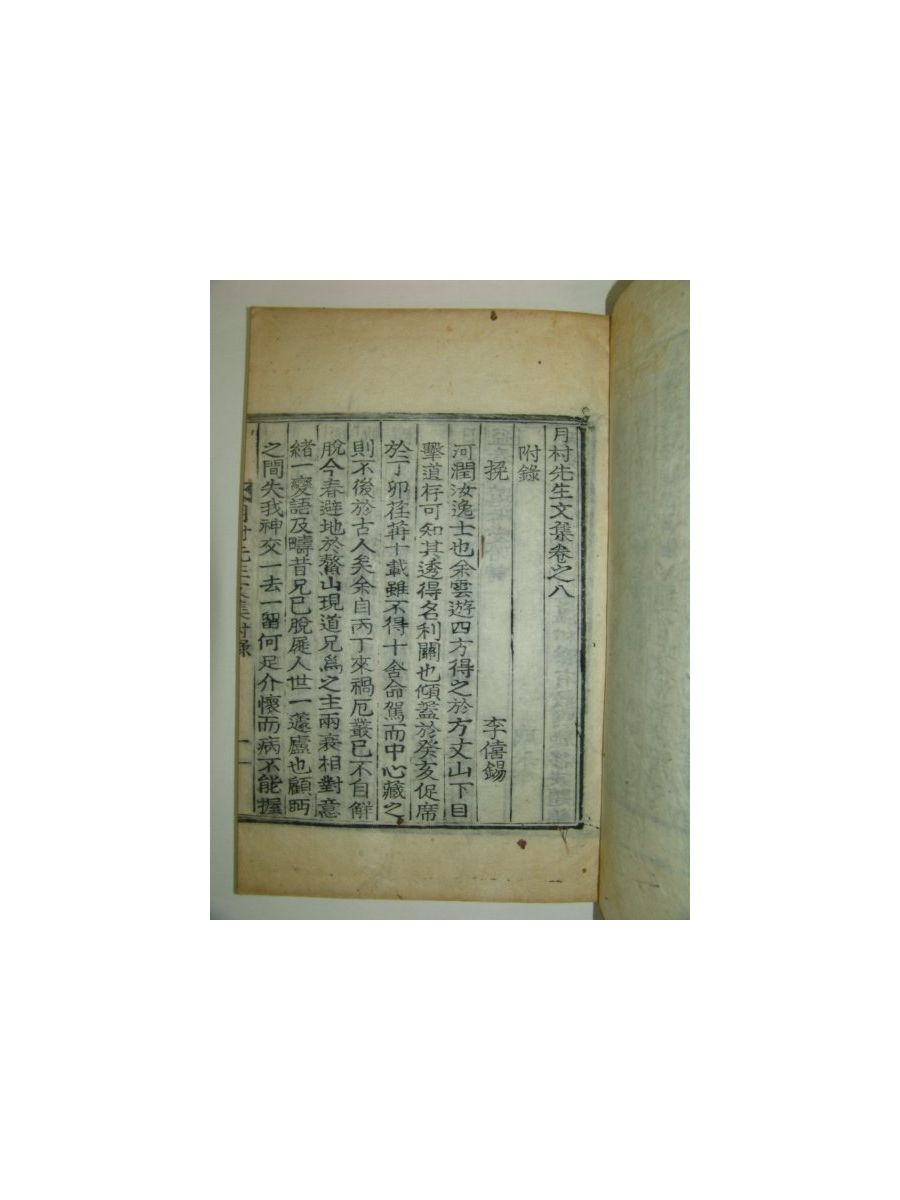 月村先生文集卷之八
附錄
挽 李僖錫
河潤汝逸士也余雲遊四方得之於方丈山下目
擊道存可知其透得名利關也傾蓋於癸亥促席
於丁卯荏苒十載雖不得十舍命駕而中心藏之
則不後於古人矣余自丙丁來禍厄叢已不自觧
脫今春避地於鰲山現道兄爲之主兩衰相對意
緖一變語及疇昔兄已脫屣人世一蘧廬也顧眄
之間失我神交一去一留何足介懷而病不能握
月村先生文集附錄 一